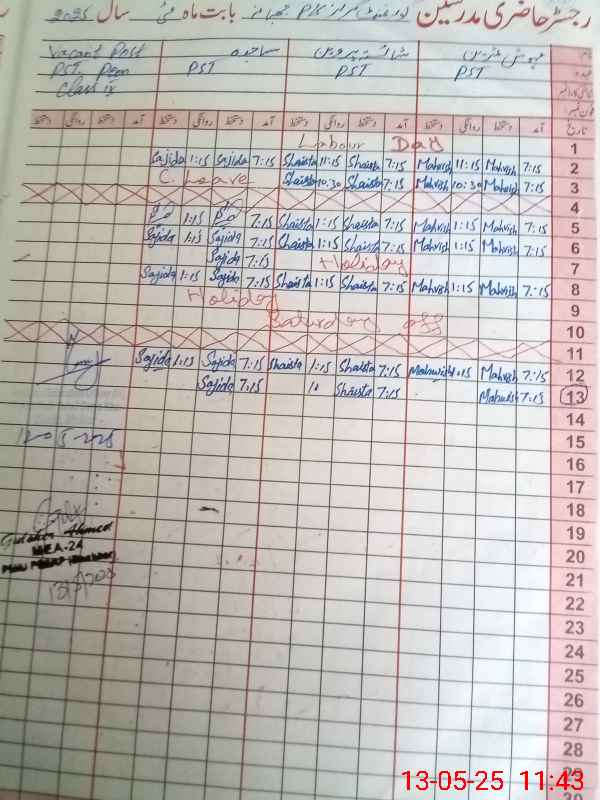 رجسٹر حاضری مدرسین گورنمنٹ گرلز بابت ماہ مئی سال 2025
مہوش شائستہ پروین ساجدہ Vacant Post
PST PST PST PST. Peon
Class IX
تاریخ آمد دستخط روانگی دستخط آمد دستخط روانگی دستخط آمد دستخط روانگی دستخط دستخط روانگی دستخط
Labour Day 1
Sajida 1:15 Sajida 7:15 Shaista 11:15 Shaista 7:15 Mahvish 11:15 Mahvish 7:15 2
C. Leave Shaista 10:30 Shaista 7:15 Mahvish 10:30 Mahvish 7:15 3
4
1:15 7:15 Shaista 1:15 Shaista 7:15 Mahvish 1:15 Mahvish 7:15 5
Sajida 1:15 Sajida 7:15 Shaista 1:15 Shaista 7:15 Mahvish 1:15 Mahvish 7:15 6
Sajida 7:15 Holiday 7
Sajida 1:15 Sajida 7:15 Shaista 1:15 Shaista 7:15 Mahvish 1:15 Mahvish 7:15 8
Holiday 9
Saturday off 10
11
Sajida 1:15 Sajida 7:15 Shaista 1:15 Shaista 7:15 Mahwish 1:15 Mahvish 7:15 12
Sajida 7:15 Shaista 7:15 Mahwish 7:15 13
14
15
16
17
18
19
Ahmed
MEA-24
20
13/5/2025
21
22
23
24
25
26
27
28
29
30
13-05-25 11:43